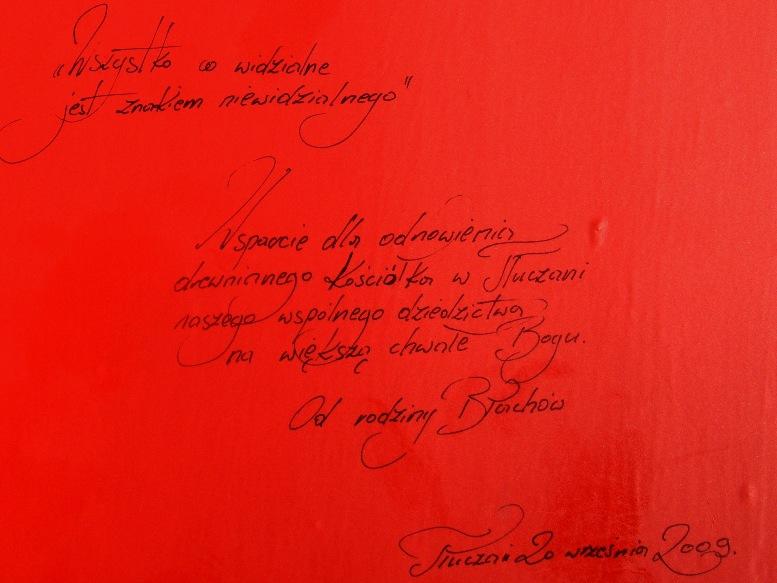 „Wszystko co widzialne
jest znakiem niewidzialnego"
Wsparcie dla odnowienia
drewnianego Kościółka w Tłuczani
naszego wspólnego dziedzictwa
na większą chwałę Bogu.
Od rodziny Błachów
Tłuczań 20 września 2009.